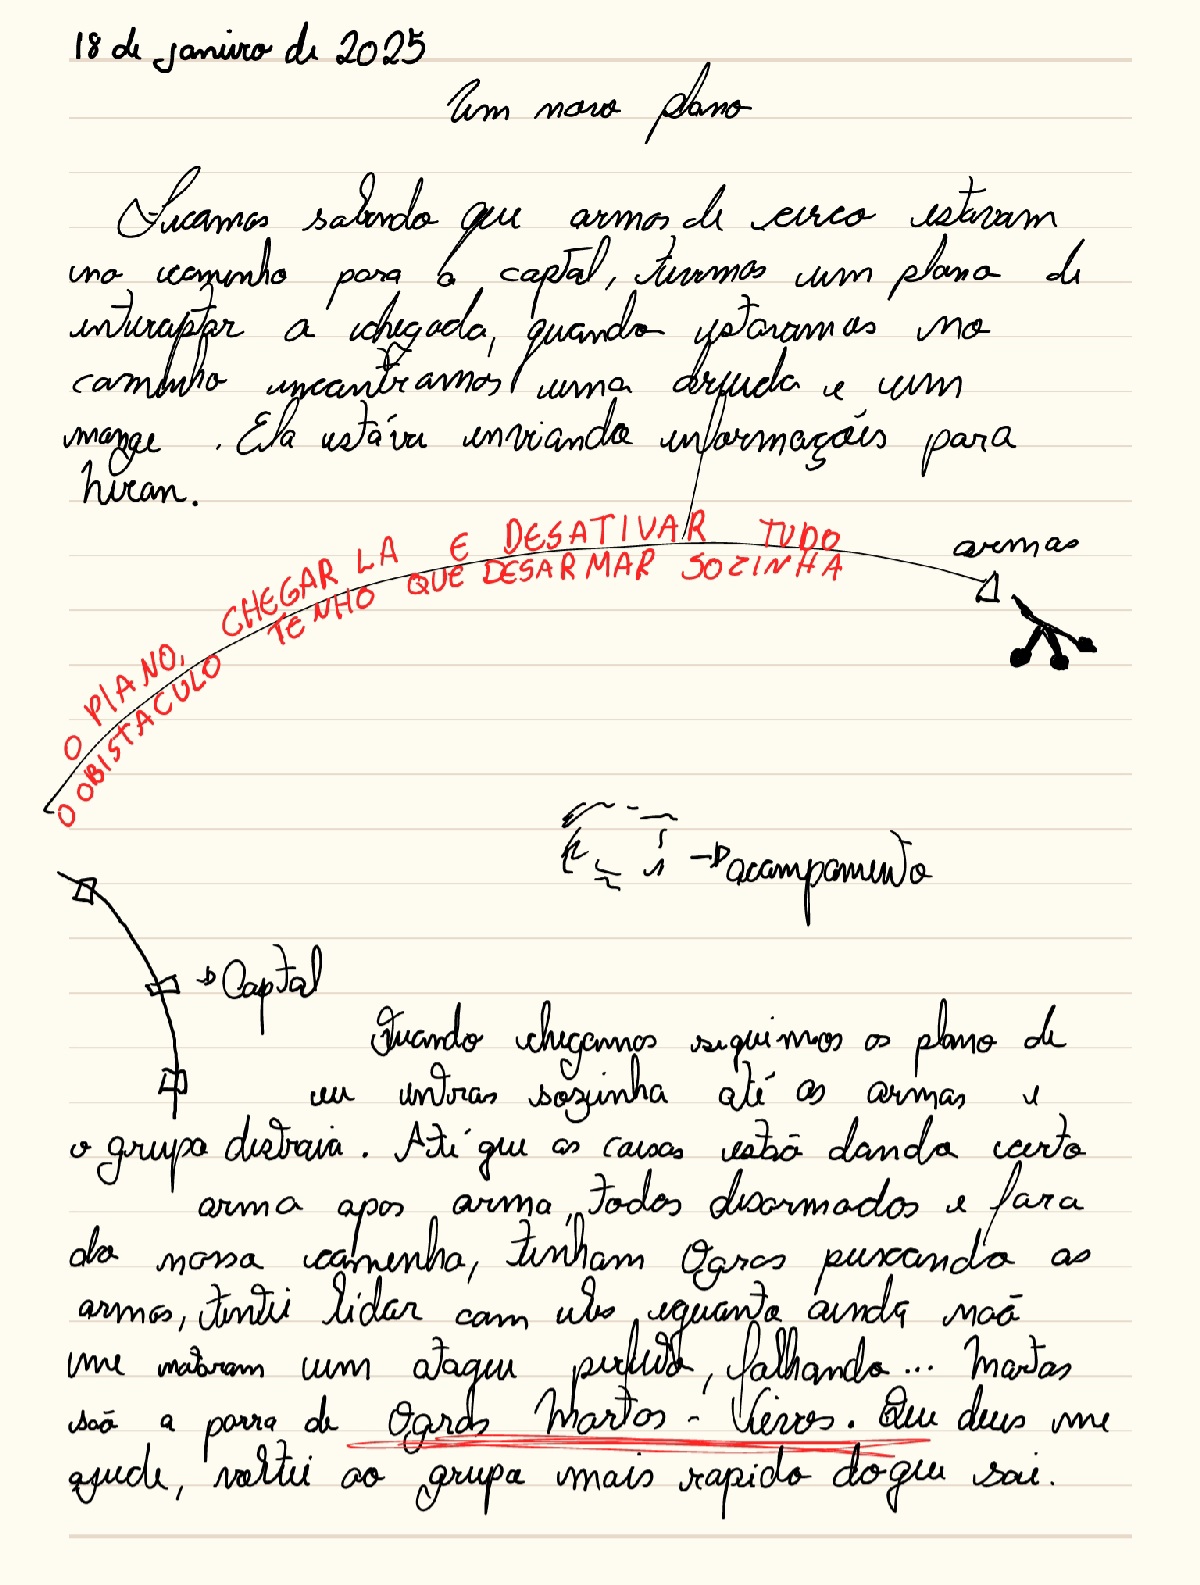 18 de janeiro de 2025
Um novo plano
Ficamos sabendo que armas de cerco estavam
no caminho para a captal, tivemos um plano de
interaptar a chegada, quando estavamos no
caminho encontramos uma druida e um
monge . Ela estáva enviando informações para
hiran.
O PLANO, CHEGAR LA E DESATIVAR TUDO
O OBISTACULO TENHO QUE DESARMAR SOZINHA
armas
acampamento
Captal
Quando chegamos seguimos os plano de
eu entras sozinha até as armas e
o grupo distraia. Até que as coisas estão dando certo
arma apos arma, todos desarmados e fora
do nosso caminho, tinham Ogros puxando as
armas, tentei lidar com eles equanto ainda não
me notaram um ataque perfeito, falhando... Mortos
são a porra de Ogros Mortos - Vivos. Que deus me
ajude, voltei ao grupo mais rapido do que sai.